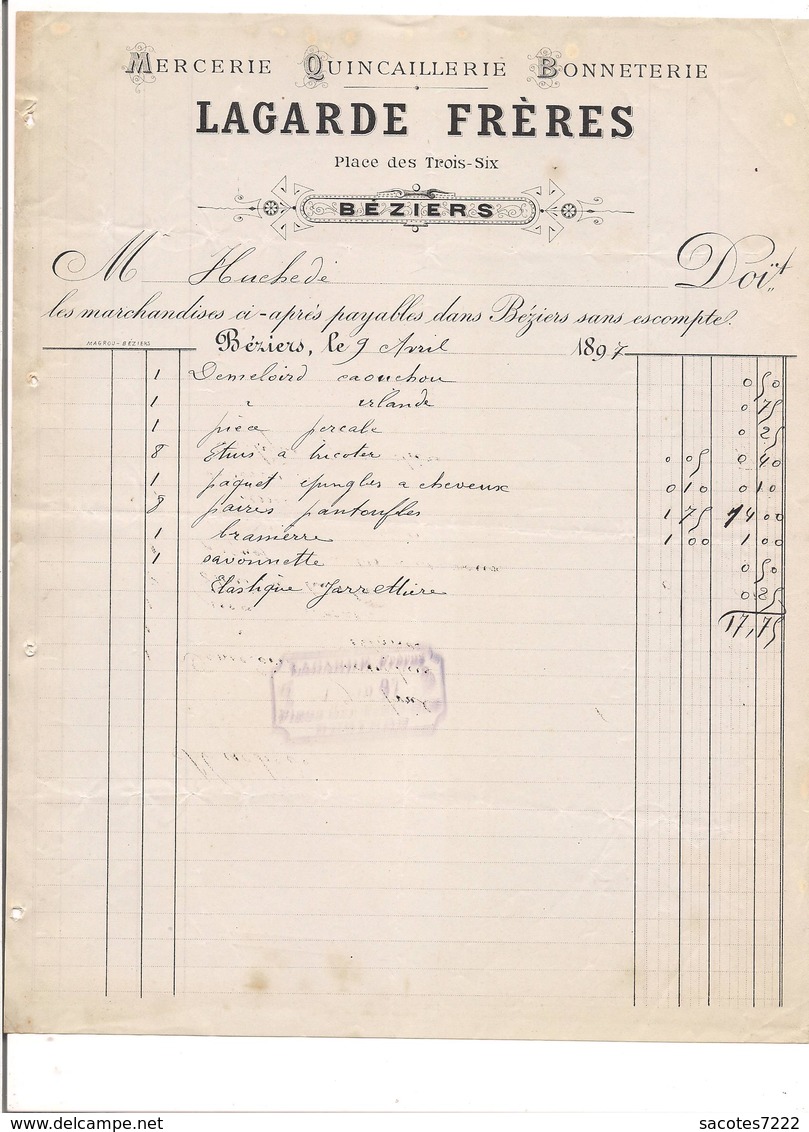 Mercerie Quincaillerie Bonneterie
LAGARDE FRÈRES
Place des Trois-Six
BÉZIERS
M Huchedé Doit
les marchandises ci-après payables dans Béziers sans escompte.
MAGROU-BÉZIERS
Béziers, le 9 Avril 1897
1 Demeloird caouchou 0 50
1 " irlande 0 75
1 pièce percale 0 25
8 Etuis a tricoter 0 05 0 40
1 paquet epingles a cheveux 0 10 0 10
8 paires pantoufles 1 75 14 00
1 1 00 1 00
1 savonnette 0 50
Elastique Jarretière 0.25
17,75
delcampe.net
sacotes7222